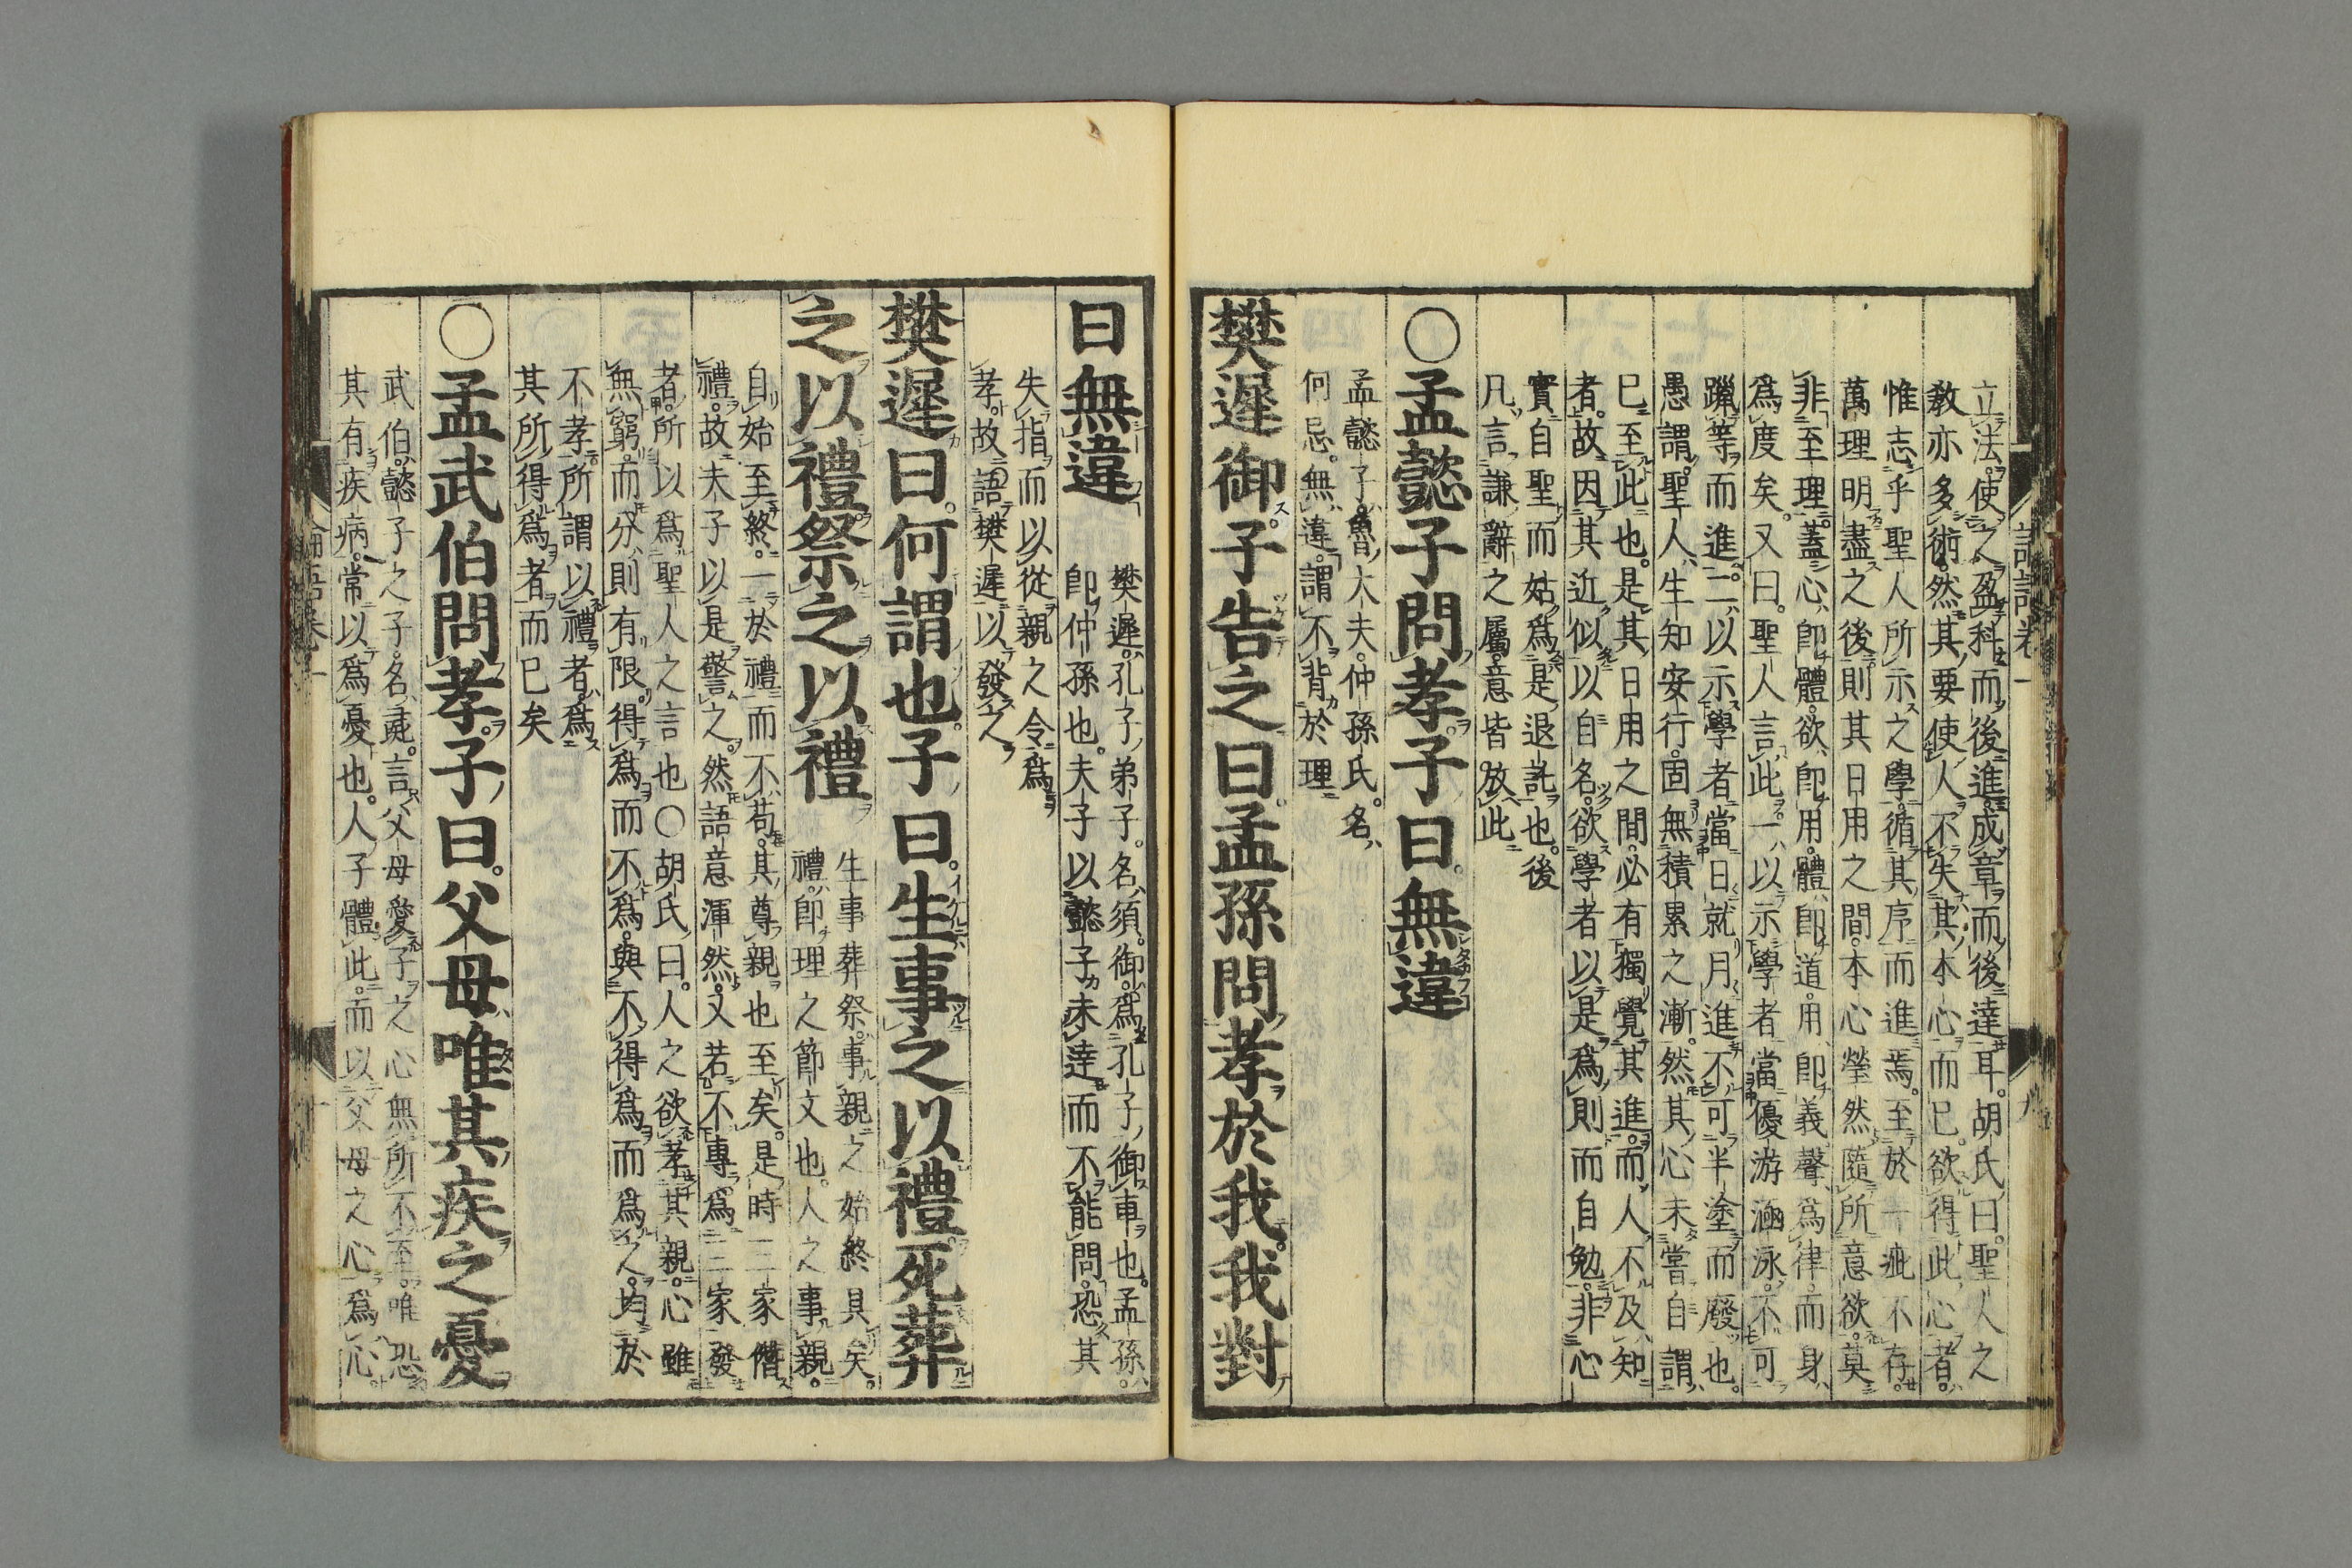 立法。使之盈科而後進。成章而後達耳。胡氏曰。聖人之
教亦多術。然其要使人不失其本心而已。欲得此心者。
惟志乎聖人所示之學。循其序而進焉。至於一疵不存。
萬理明盡之後。則其日用之間。本心瑩然。隨所意欲。莫
非至理。蓋心卽體。欲卽用。體卽道。用卽義。聲爲律而身
爲度矣。又曰。聖人言此。一以示學者當優游涵泳。不可
躐等而進。二以示學者當日就月進不可半塗而廢也。
愚謂聖人生知安行。固無積累之漸。然其心未嘗自謂
已至此也。是其日用之間。必有獨覺其進。而人不及知
者。故因其近似以自名。欲學者以是爲則而自勉。非心
實自聖而姑爲是退託也。後
凡言謙辭之屬。意皆放此
○孟懿子問孝。子曰。無違
孟懿子。魯大夫。仲孫氏。名
何忌。無違。謂不背於理
樊遲御。子告之曰。孟孫問孝於我。我對
曰無違
樊遲。孔子弟子。名須。御。爲孔子御車也。孟孫。
卽仲孫也。夫子以懿子未達而不能問。恐其
失指而以從親之令爲
孝。故語樊遲以發之
樊遲曰。何謂也。子曰。生事之以禮。死葬
之以禮。祭之以禮
生事葬祭。事親之始終具矣。
禮。卽理之節文也。人之事親。
自始至終。一於禮而不苟。其尊親也至矣。是時三家僭
禮。故夫子以是警之。然語意渾然。又若不專爲三家發
者。所以爲聖人之言也○胡氏曰。人之欲孝其親。心雖
無窮。而分則有限。得爲而不爲。與不得爲而爲之。均於
不孝。所謂以禮者。爲
其所得爲者而已矣
○孟武伯問孝。子曰。父母唯其疾之憂
武伯。懿子之子。名彘。言父母愛子之心無所不至。唯恐
其有疾病。常以爲憂也。人子體此。而以父母之心爲心。